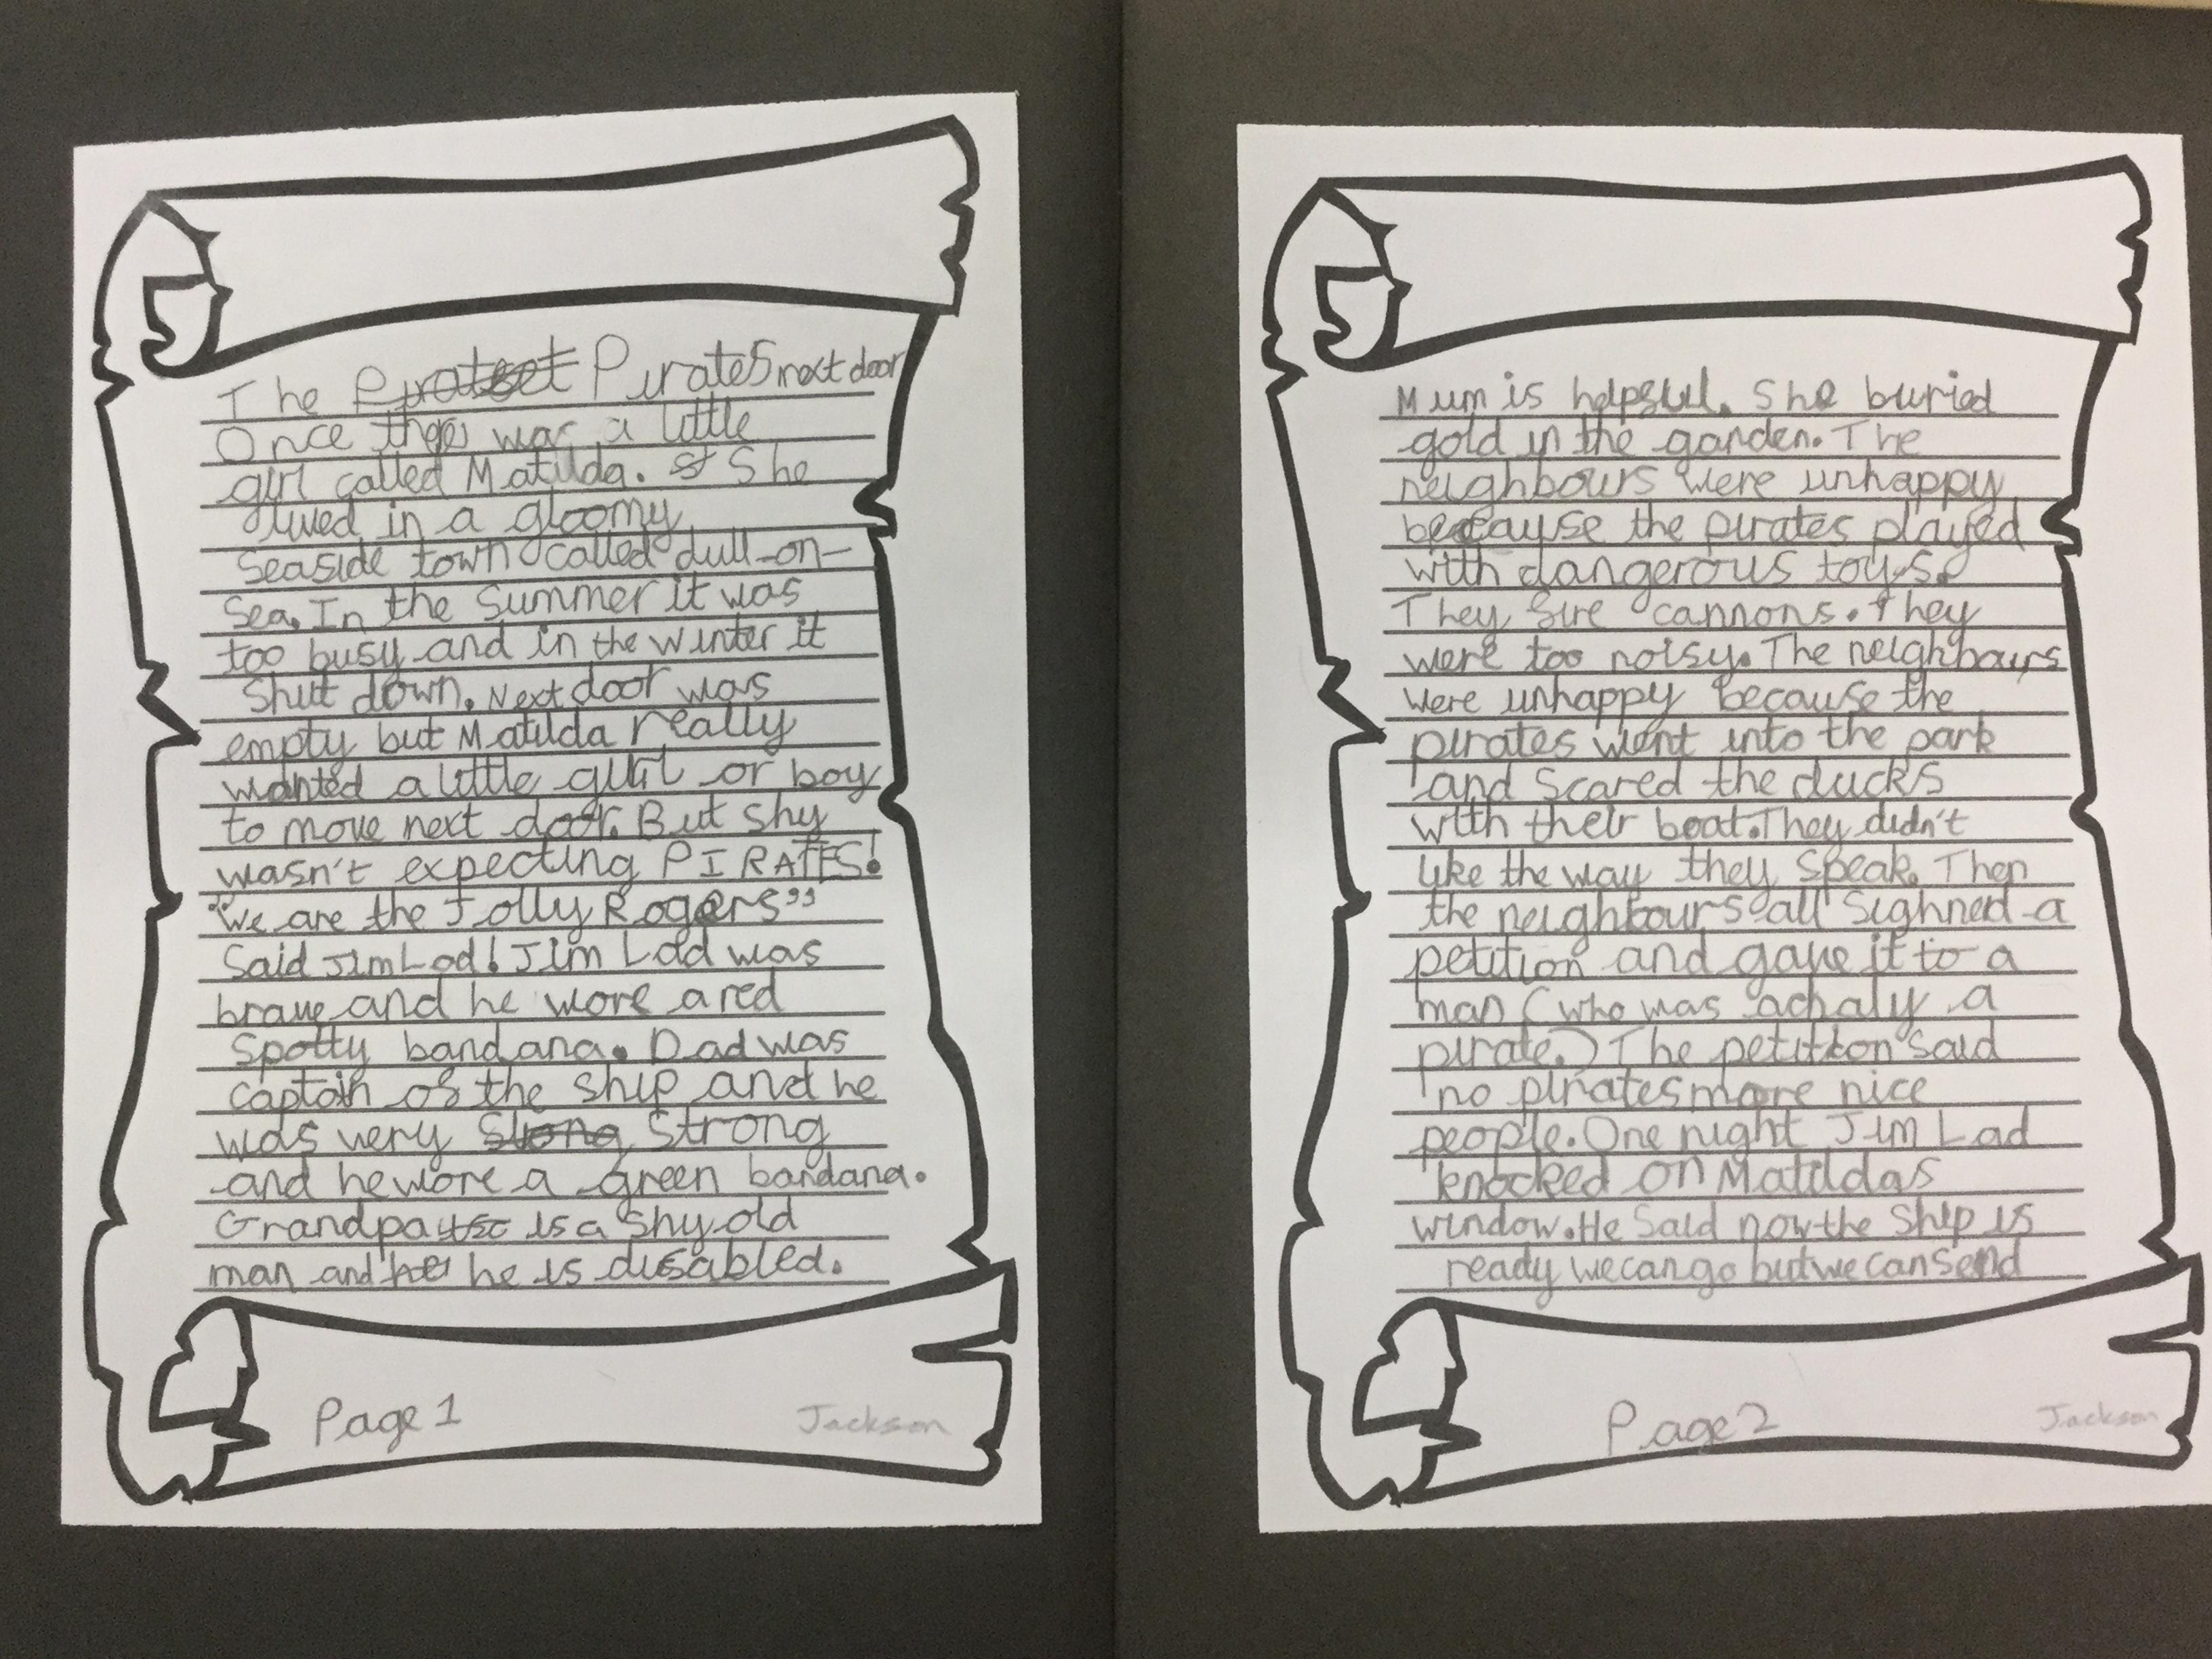 The Pirates next door
Once there was a little
girl called Matilda. She
lived in a gloomy
Seaside town called dull-on-
Sea. In the Summer it was
too busy and in the winter it
Shut down. Next door was
empty but Matilda really
wanted a little girl or boy
to move next door. But shy
wasn't expecting PIRATES!
"We are the Jolly Rogers"
Said Jim Lad! Jim Lad was
brave and he wore a red
Spotty bandana. Dad was
captain of the Ship and he
was very Strong
and he wore a green bandana.
Grandpa is a Shy old
man and he is disabled.
Page 1
Jackson
Mum is helpful. She buried
gold in the garden. The
neighbours were unhappy
because the pirates played
with dangerous toys.
They fire cannons. They
were too noisy. The neighbours
were unhappy because the
pirates went into the park
and Scared the ducks
with their boat. They didn't
like the way they Speak. Then
the neighbours all Sighned a
petition and gave it to a
man (who was achaly a
pirate.) The petition Said
no pirates more nice
people. One night Jim Lad
knocked on Matildas
window. He Said now the Ship is
ready we can go but we can Send
Page 2
Jackson